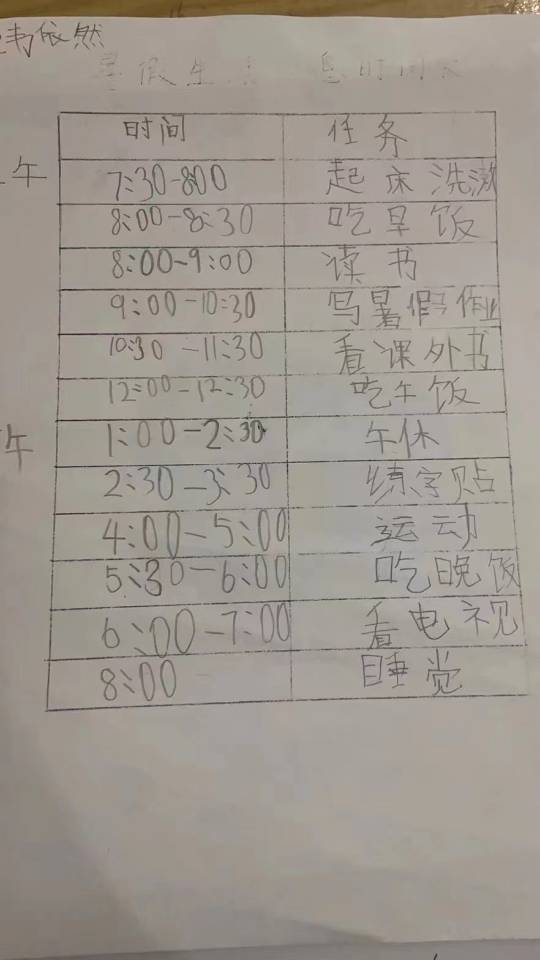 韦依然
暑假生 息时间
时间 任务
午
7:30-8:00 起床洗漱
8:00-8:30 吃早饭
8:00-9:00 读书
9:00-10:30 写暑假作业
10:30-11:30 看课外书
12:00-12:30 吃午饭
午
1:00-2:30 午休
2:30-3:30 练字贴
4:00-5:00 运动
5:30-6:00 吃晚饭
6:00-7:00 看电视
8:00 睡觉